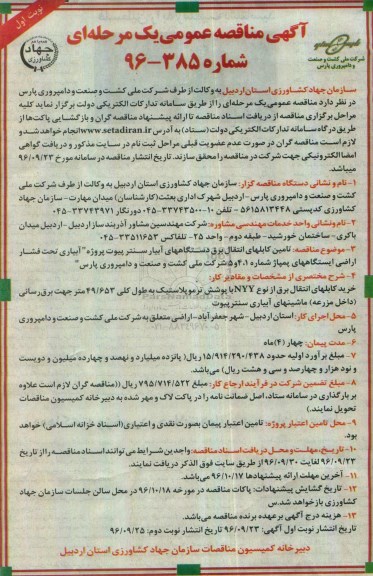 نوبت اول
آگهی مناقصه عمومی یک مرحله‌ای
شماره ۳۸۵-۹۶
جهاد کشاورزی
شرکت ملی کشت و صنعت و دامپروری پارس
سازمان جهاد کشاورزی استان اردبیل به وکالت از طرف شرکت ملی کشت و صنعت و دامپروری پارس
در نظر دارد مناقصه عمومی یک مرحله‌ای را از طریق سامانه تدارکات الکترونیکی دولت برگزار نماید کلیه
مراحل برگزاری مناقصه از دریافت اسناد مناقصه تا ارائه پیشنهاد مناقصه گران و بازگشایی پاکت‌ها از
طریق درگاه سامانه تدارکات الکترونیکی دولت (ستاد) به آدرس www.setadiran.ir انجام خواهد شد و
لازم است مناقصه گران در صورت عدم عضویت قبلی مراحل ثبت نام در سایت مذکور و دریافت گواهی
امضا الکترونیکی جهت شرکت در مناقصه را محقق سازند. تاریخ انتشار مناقصه در سامانه مورخ ۹۶/۰۹/۲۳
میباشد.
۱- نام و نشانی دستگاه مناقصه گزار: سازمان جهاد کشاورزی استان اردبیل به وکالت از طرف شرکت ملی
کشت و صنعت و دامپروری پارس - اردبیل شهرک اداری بعثت (کارشناسان) میدان مهارت- سازمان جهاد
کشاورزی کدپستی ۵۶۱۵۸۱۳۴۴۸ - تلفن ۱۰-۳۳۷۴۳۵۰۰-۰۴۵ دورنگار ۳۳۷۴۳۹۷۱-۰۴۵
۲- نام ونشانی واحد خدمات مهندسی مشاوره: شرکت مهندسین مشاور آذربند ساز اردبیل - اردبیل میدان
باکری- ساختمان خورشید - طبقه دوم - واحد ۲۵- تلفاکس ۳۳۵۱۱۶۵۳-۰۴۵
۳- موضوع مناقصه: تامین کابلهای انتقال برق دستگاههای آبیار سنتر پیوت پروژه "آبیاری تحت فشار
اراضی ایستگاههای پمپاژ شماره ۱و۴و۵ شرکت ملی کشت و صنعت و دامپروری پارس"
۴- شرح مختصری از مشخصات و مقادیر کار:
خرید کابلهای انتقال برق از نوع NYY با پوشش ترموپلاستیک به طول کلی ۴۹/۶۵۳ متر جهت برق رسانی
(داخل مزرعه) ماشینهای آبیاری سنتر پیوت
۵- محل اجرای کار: استان اردبیل- شهر جعفر آباد- اراضی متعلق به شرکت ملی کشت و صنعت و دامپروری
پارس
۶- مدت پیمان: چهار (۴) ماه
۷- مبلغ بر آورد اولیه حدود ۱۵/۹۱۴/۲۹۰/۴۳۸ ریال( پانزده میلیارد و نهصد و چهارده میلیون و دویست
و نود هزار و چهارصد و سی و هشت ریال) می‌باشد.
۸- مبلغ تضمین شرکت در فرآیند ارجاع کار: مبلغ ۷۹۵/۷۱۴/۵۲۲ ریال ((مناقصه گران لازم است علاوه
بر بارگذاری در سامانه ستاد، اصل ضمانت نامه را در پاکت لاک و مهر شده به دبیرخانه کمیسیون مناقصات
تحویل نمایند.)
۹- محل تامین اعتبار پروژه: تامین اعتبار پیمان بصورت نقدی و اعتباری (اسناد خزانه اسلامی) خواهد
بود.
۱۰- تاریخ، مهلت و محل دریافت اسناد مناقصه: واجدین شرایط می توانند اسناد مناقصه را از تاریخ
۹۶/۰۹/۲۳ لغایت ۹۶/۰۹/۳۰ از طریق سایت فوق الذکر دریافت نمایند.
۱۱- آخرین مهلت ارائه پیشنهادها ۹۶/۱۰/۱۷ می‌باشد.
۱۲- تاریخ گشایش پیشنهادات: پاکات مناقصه در مورخه ۹۶/۱۰/۱۸ در محل سالن جلسات سازمان جهاد
کشاورزی بازخواهد شد.س
۱۳- هزینه درج آگهی بر عهده برنده مناقصه می‌باشد.
تاریخ انتشار نوبت اول آگهی: ۹۶/۰۹/۲۳ تاریخ انتشار نوبت دوم: ۹۶/۰۹/۲۵
دبیرخانه کمیسیون مناقصات سازمان جهاد کشاورزی استان اردبیل